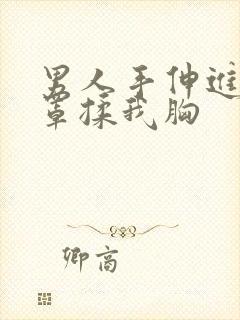 男人手伸进
罩揉我胸
卿高